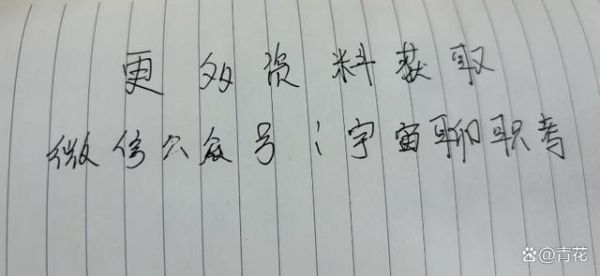 更多资料获取
微信公众号：宇宙聊职考
青花